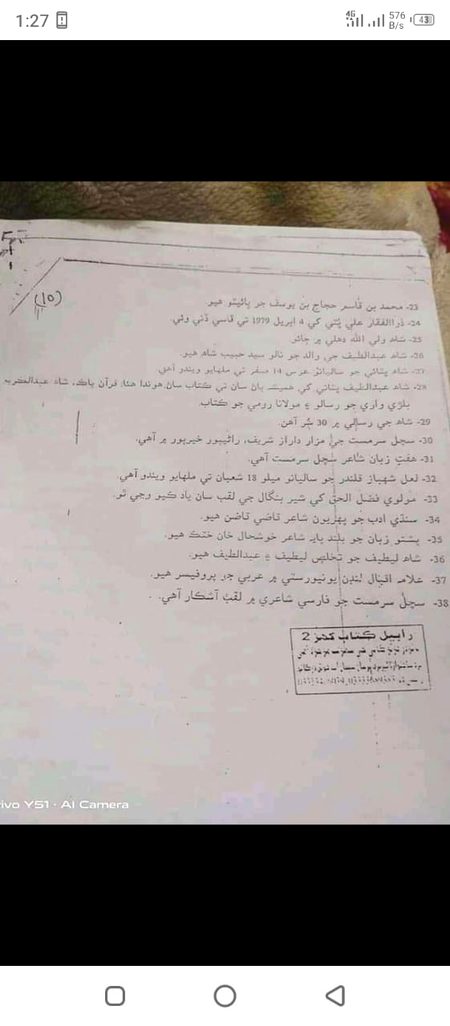 1:27
4G 576 B/s 43
(10)
23- محمد بن قاسم حجاج بن يوسف جو ڀائيٽو هيو.
24- ذوالفقار علي ڀٽي کي 4 اپريل 1979 تي ڦاسي ڏني وئي.
25- شاھ ولي الله دهلي ۾ ڄائو.
26- شاھ عبداللطيف جي والد جو نالو سيد حبيب شاھ هيو.
27- شاھ ڀٽائي جو ساليانو عرس 14 صفر تي ملهايو ويندو آهي.
28- شاھ عبداللطيف ڀٽائي کي هميشه پاڻ سان ٽي ڪتاب ساڻ هوندا هئا: قرآن پاڪ، شاھ عبدالڪريم
بلڙي واري جو رسالو ۽ مولانا رومي جو ڪتاب.
29- شاھ جي رسالي ۾ 30 سُر آهن.
30- سچل سرمست جي مزار داراز شريف، راڻيپور خيرپور ۾ آهي.
31- هفت زبان شاعر سچل سرمست آهي.
32- لعل شهباز قلندر جو ساليانو ميلو 18 شعبان تي ملهايو ويندو آهي.
33- مولوي فضل الحق کي شير بنگال جي لقب سان ياد ڪيو وڃي ٿو.
34- سنڌي ادب جو پهريون شاعر قاضي قاضن هيو.
35- پشتو زبان جو بلند پايه شاعر خوشحال خان خٽڪ هيو.
36- شاھ لطيف جو تخلص لطيف ۽ عبداللطيف هيو.
37- علامه اقبال لنڊن يونيورسٽي ۾ عربي جو پروفيسر هيو.
38- سچل سرمست جو فارسي شاعري ۾ لقب آشڪار آهي.
رابيل ڪتاب گهر 2
vivo Y51 · AI Camera